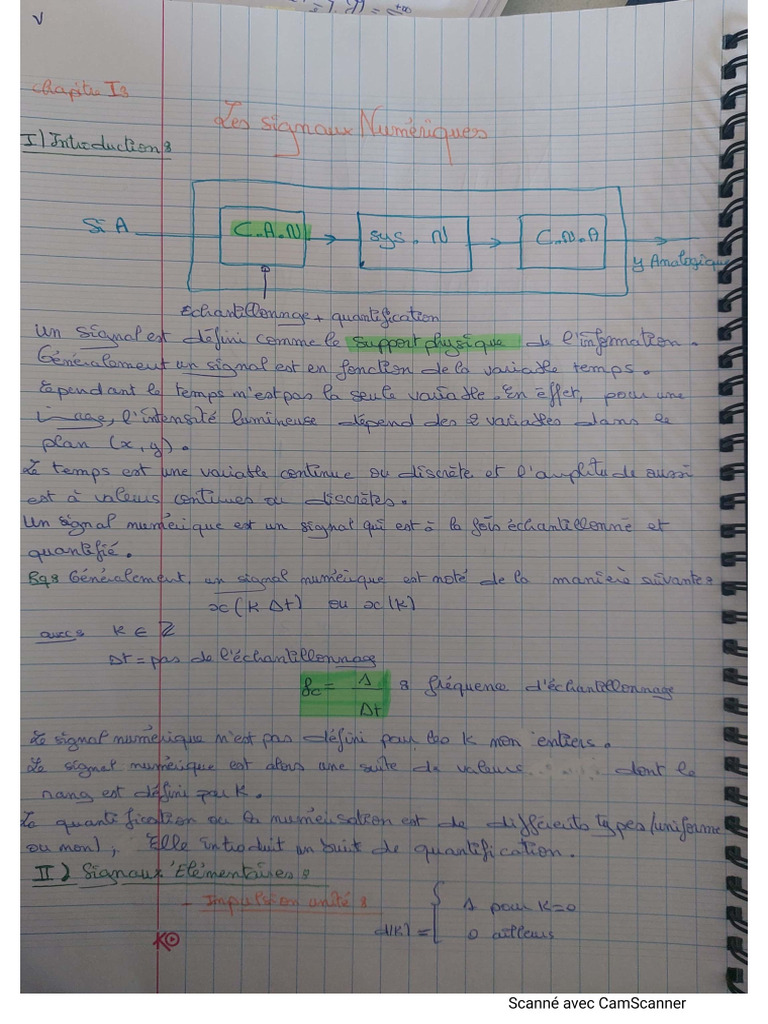 Chapitre I :
Les signaux Numériques
I) Introduction :
S.A
C.A.N
sys. N
C.N.A
y Analogique
Echantillonnage + quantification
Un signal est défini comme le support physique de l'information.
Généralement un signal est en fonction de la variable temps.
Cependant le temps n'est pas la seule variable. En effet, pour une
image, l'intensité lumineuse dépend des 2 variables dans le
plan (x, y).
Le temps est une variable continue ou discrète et l'amplitude aussi
est à valeurs continues ou discrètes.
Un signal numérique est un signal qui est à la fois échantillonné et
quantifié.
Rq : Généralement, un signal numérique est noté de la manière suivante :
x(k Δt) ou x(k)
avec : k ∈ Z
Δt = pas de l'échantillonnage
fe = 1/Δt : fréquence d'échantillonnage
Le signal numérique n'est pas défini pour les k non entiers.
Le signal numérique est alors une suite de valeurs dont le
rang est défini par k.
La quantification ou la numérisation est de différents types (uniforme
ou non), Elle introduit un bruit de quantification.
II) Signaux Elémentaires :
- Impulsion unité :
d(k) = { 1 pour k=0
0 ailleurs
Scanné avec CamScanner